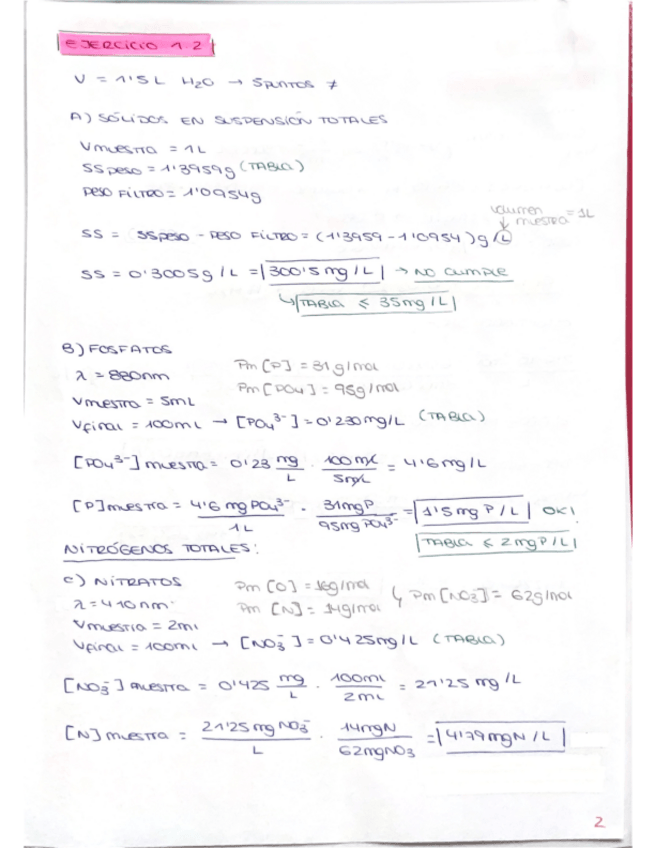 EJERCICIO 1.2
V = 1'5 L H2O → 5 PUNTOS ≠
A) SÓLIDOS EN SUSPENSIÓN TOTALES
Vmuestra = 1L
SS peso = 1'3959g (TABLA)
PESO FILTRO = 1'0954g
volumen muestra = 1L
SS = SSpeso - PESO FILTRO = (1'3959 - 1'0954) g / L
SS = 0'3005 g / L = 300'5 mg / L → NO CUMPLE
↳ TABLA ≤ 35 mg / L
B) FOSFATOS
Pm [P] = 31 g/mol
λ = 880nm
Pm [PO4] = 95g/mol
Vmuestra = 5mL
Vfinal = 100mL → [PO4³⁻] = 0'230 mg/L (TABLA)
[PO4³⁻] muestra = 0'23 mg/L · 100mL/5mL = 4'6 mg/L
[P] muestra = 4'6 mg PO4³⁻/1L · 31mg P/95mg PO4³⁻ = 1'5 mg P / L OK!
TABLA ≤ 2 mg P/L
NITRÓGENOS TOTALES:
C) NITRATOS
Pm [O] = 16g/mol
λ = 410 nm
Pm [N] = 14g/mol ↳ Pm [NO3⁻] = 62g/mol
Vmuestra = 2mL
Vfinal = 100mL → [NO3⁻] = 0'425 mg/L (TABLA)
[NO3⁻] muestra = 0'425 mg/L · 100mL/2mL = 21'25 mg/L
[N] muestra = 21'25 mg NO3⁻/L · 14mg N/62mg NO3 = 4'79 mg N / L
2